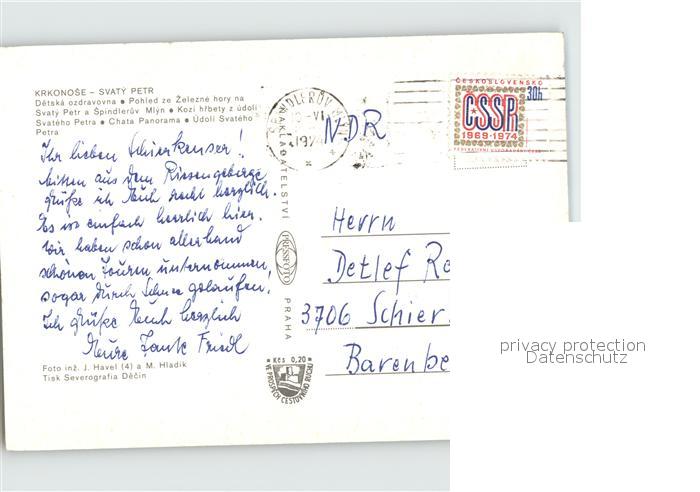 KRKONOŠE – SVATÝ PETR
Dětská ozdravovna ● Pohled ze Železné hory na
Svatý Petr a Špindlerův Mlýn ● Kozí hřbety z údolí
Svatého Petra ● Chata Panorama ● Údolí Svatého
Petra
Ihr lieben Schierkenser!
Mitten aus dem Riesengebirge
grüße ich Euch recht herzlich.
Es ist einfach herrlich hier.
Wir haben schon allerhand
schönen Touren unternommen,
sogar durch Schnee gelaufen.
Ich grüße Euch herzlich
Eure Tante Friedl
Foto inž. J. Havel (4) a M. Hladík
Tisk Severografia Děčín
NAKLADATELSTVÍ
PRESSFOTO
PRAHA
Kčs 0,20
VE PROSPĚCH CESTOVNÍHO RUCHU
ŠPINDLERŮV MLÝN
NDR
ČESKOSLOVENSKO
30h
ČSSR
1969-1974
Herrn
Detlef Re
3706 Schier
Barenbe
privacy protection
Datenschutz